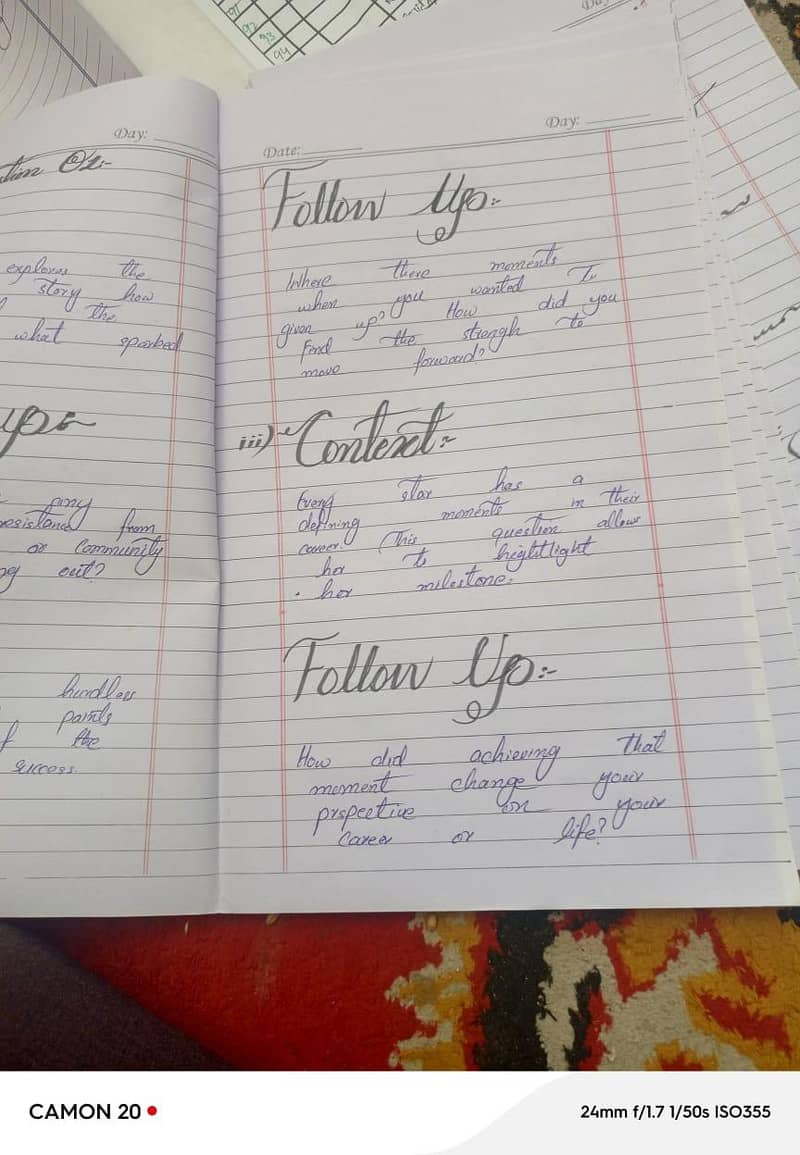 Day:
explores the
story how
the
what sparked
any
from
or community
out?
hurdless
paints
the
success.
Date:
Day:
Follow Up:-
Where there moments
when you wanted To
given up? How did you
Fend the strengh to
move forward?
iii) Context:-
Every star has a
defining moments in their
career. This question allows
her to hightlight
her milestone.
Follow Up:-
How did achieving that
moment change your
prspective on your
Career or life?
CAMON 20
24mm f/1.7 1/50s ISO355